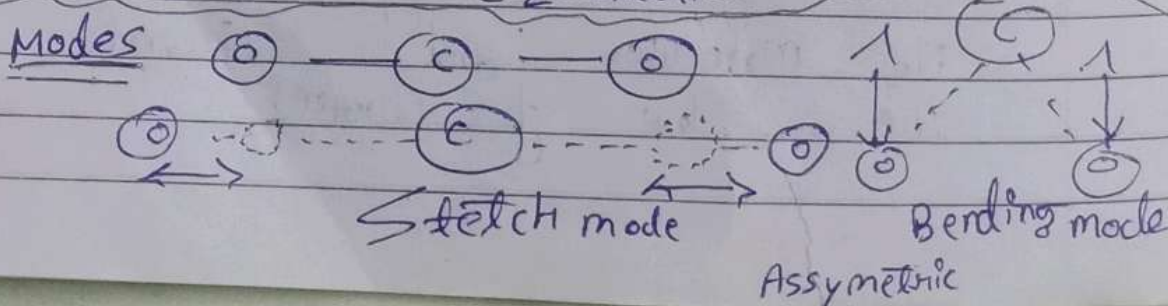 Modes O C O C
O C O O O
Stetch mode Bending mode
Assymetric